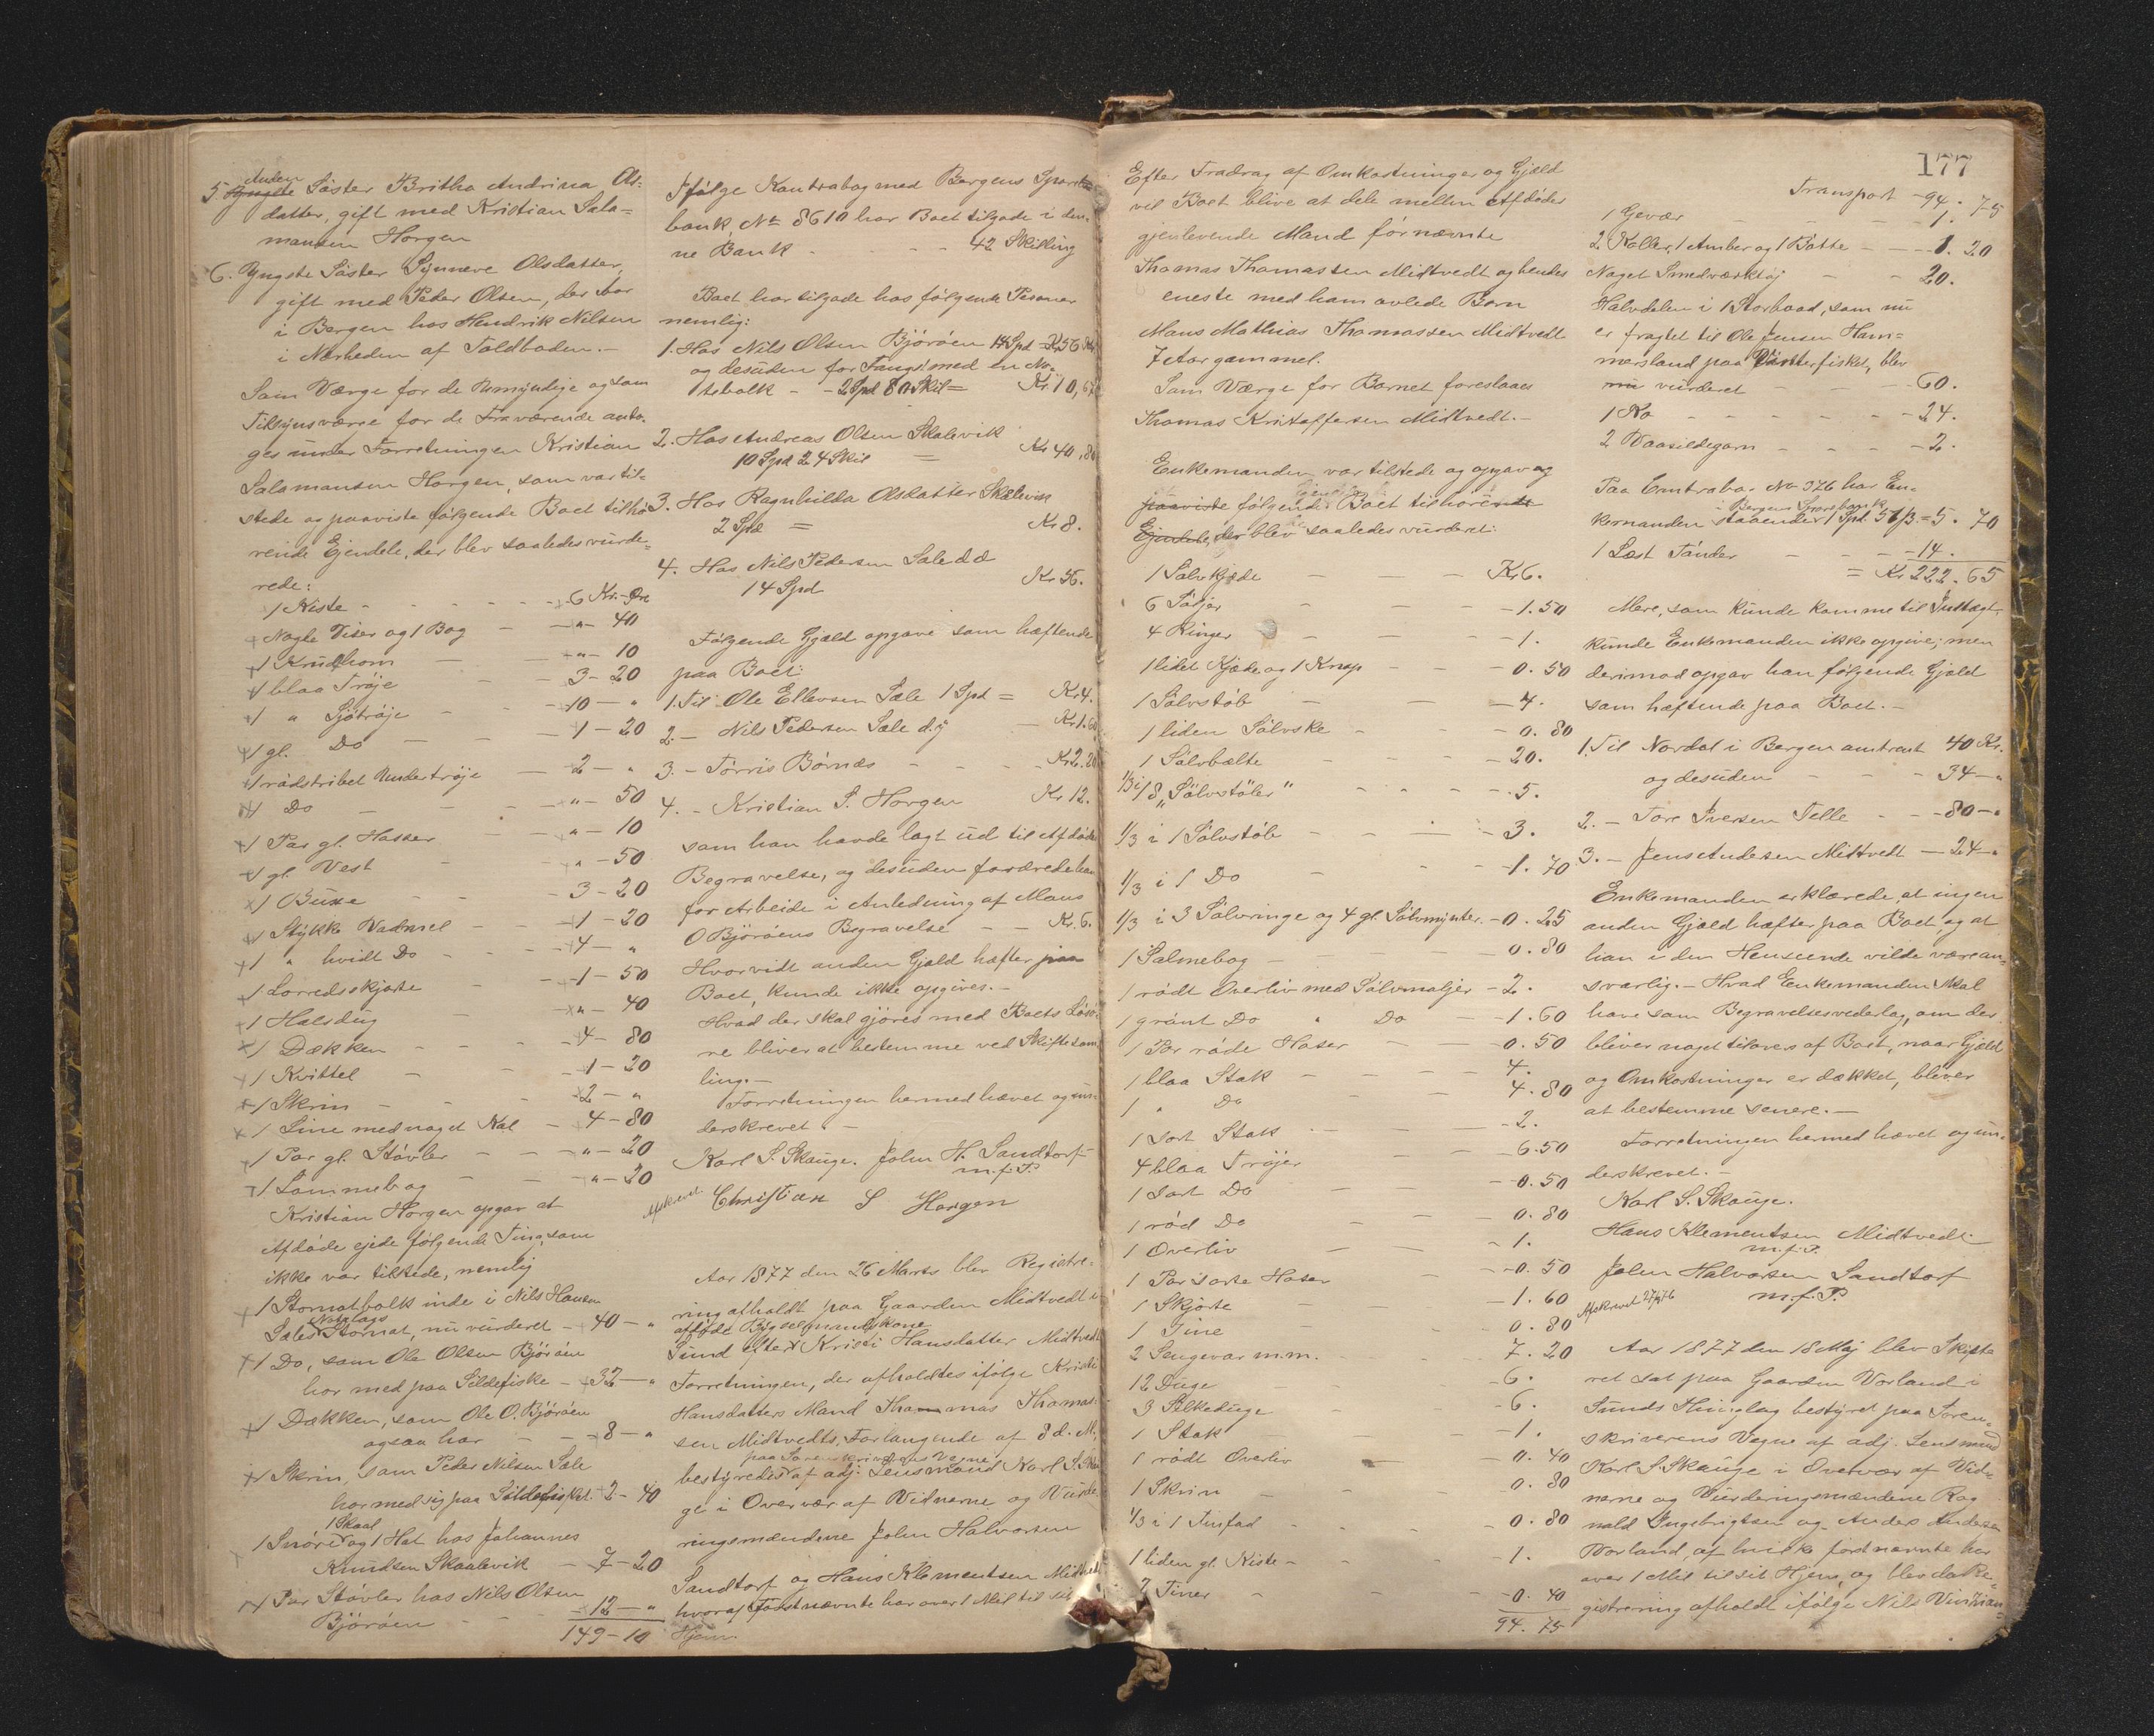 5. Anden Söster Britha Andrina Ols=
datter, gift med Kristian Sala=
mansen Horgen
6. Yngste Söster Synneve Olsdatter,
gift med Peder Olsen, der bor
i Bergen hos Hendrik Nilsen
i Nærheden af Toldboden.—
Som Værge for de Umyndige og som
Tilsynsværge for de Fraværende anto-
ges under Forretningen Kristian
Salamansen Horgen, som var til=
stede og paaviste følgende Boet tilhö
rende Ejendele, der blev saaledes vurde=
rede:
1 Kiste - - - 6 Kr.- Øre
Nogle Viser og 1 Bog — „— 40
1 Krudhorn — „— 10
1 blaa Tröje — 3— 20
1 „ Sjötröje — 10 — „
1 gl. Do — 1— 20
1 rödstribet Undertröje — 2 — „
1 Do — „— 50
1 Par gl. Hoser — „— 10
1 gl. Vest — „— 50
1 Buxe — 3— 20
1 Stykke Vadmel — 1— 20
1 „ hvidt Do — 4 — „
1 Lærredsskjorte — 1— 50
1 Halsdug — „— 40
1 Dækken — 4— 80
1 Kvittel — 1— 20
1 Skrin — 2 — „
1 Line med noget Nal — 4— 80
1 Par gl. Stövler — „— 20
1 Lommebog — „— 20
Kristian Horgen opgav at
Afdöde ejede følgende Ting, som
ikke var tilstede, nemlig
1 Stornotbolk inde i Nils Hansen
Sales Notelags Stornot, nu vurderet — 40 — „
1 Do, som Ole Olsen Björöen
har med paa Sildefiske — 32 — „
1 Dækken, som Ole O. Björöen
ogsaa har — 8 — „
1 Skrin, som Peder Nilsen Sale
har med sig paa Sildefisket. 2— 40
1 Snöre 1 Skaal og 1 Hat hos Johannes
Knudsen Skaalevik — 7— 20
1 Par Stövler hos Nils Olsen
Björöen — 12 — „
149—10
Ifølge Kontrabog med Bergens Spare
bank, No 8610 har Boet tilgode i den-
ne Bank - - - 42 Skilling
Boet har tilgode hos følgende Personer
nemlig:
1. Hos Nils Olsen Björöen 14 Spd = Kr 56
og desuden for Fangst med en No-
tebolk — 2 Spd 80 Skil = Kr. 10,67
2. Hos Andreas Olsen Skalevik
10 Spd 24 Skil = Kr 40,80
3. Hos Ragnhilda Olsdatter Skalevik
2 Spd = Kr 8.
4. Hos Nils Pedersen Sale d.d.
14 Spd Kr 56.
Følgende Gjæld opgave som hæftende
paa Boet:
1. Til Ole Ellevsen Sale 1 Spd = Kr 4.
2. — Nils Pedersen Sale d.y. — Kr 1.60
3. — Törris Börnes — Kr 2.20
4. — Kristian S. Horgen Kr 12.
som han havde lagt ud til Afdödes
Begravelse, og desuden fordrede han
for Arbeide i Anledning af Mons
O Björöens Begravelse — Kr. 6.
Hvorvidt anden Gjæld hæfter paa
Boet, kunde ikke opgives.—
Hvad der skal gjöres med Boets Lösö-
re bliver at bestemme ved Skiftesam
ling.—
Forretningen hermed hævet og un-
derskrevet.—
Karl S. Skauge. John H. Sandtorf
m.f.P.
Afskrevet Christian S Horgen
Aar 1877 den 26 Marts blev Registre-
ring afholdt paa Gaarden Midtvedt i
Sund efter afdøde Bygselmandskone Kristi Hansdatter Midtvedt
Forretningen, der afholdtes ifølge Kristi
Hansdatters Mand Thomas Thomas-
sen Midtvedts Forlangende af 8 d. M.,
bestyredes paa Sorenskriverens Vegne af adj. Lensmand Karl S. Skau
ge i Overvær af Vidnerne og Vurde-
ringsmændene John Halvorsen
Sandtorf og Hans Klementsen Midtvedt
hvoraf förstnævnte har over 1 Mil til sit
Hjem.
177
Efter Fradrag af Omkostninger og Gjæld
vil Boet blive at dele mellem Afdödes
gjenlevende Mand førnævnte
Thomas Thomassen Midtvedt og hendes
eneste med ham avlede Barn
Mons Mathias Thomassen Midtvedt
7 Aar gammel.
Som Værge for Barnet foreslaaes
Thomas Kristoffersen Midtvedt.—
Enkemanden var tilstede og opgav og
paaviste følgende Boet tilhörende
Ejendele, der blev saaledes vurderet:
1 Sølvkjæde — Kr 6.
6 Söljer — 1.50
4 Ringe — 1.
1 lidet Kjæde og 1 Knap — 0.50
1 Sölvstöb — 4.
1 liden Sölvske — 0.80
1 Sölvbelte — 20.
1/3 i 18 „Sölvstöler“ — 5.
1/3 i 1 Sölvstöb — 3.
1/3 i 1 Do — 1.70
1/3 i 3 Sölvringe og 4 gl. Sölvmynter. — 0.25
1 Salmebog — 0.80
1 rödt Overliv med Sölvmaljer — 2.
1 grönt Do „ Do — 1.60
1 Par röde Hoser — 0.50
1 blaa Stak — 4.
1 „ Do — 4.80
1 sort Stak — 2.
4 blaa Tröjer — 6.50
1 sort Do — 0.50
1 röd Do — 0.80
1 Overliv — 1.
1 Par sorte Hoser — 0.50
1 Skjorte — 1.60
1 Tine — 0.80
2 Sengevar m.m. — 7.20
12 Duge — 6.
3 Silkeduge — 6.
1 Stak — 1.
1 rödt Overliv — 0.40
1 Skrin — 0.80
1/3 i 1 Tinfad — 0.80
1 liden gl. Kiste — 1.
2 Tiner — 0.40
94.75
Transport — 94.75
1 Gevær — 1.
2 Koller, 1 Amber og 1 Bötte — 1.20
Noget Smedværktöj — 20.
Halvdelen i 1 Storbaad, som nu
er fragtet til Ole Jensen Ham=
mersland paa Vaarfisket, blev
nu vurderet — 60.
1 Ko — 24.
2 Vaarsildegarn — 2.
Paa Contrabog No 376 har En-
kemanden i Bergens Sparebank staaende 1 Spd. 51 ß = 5.70
1 Læst Tönder — 14.
= Kr 222.65
Mere, som kunde komme til Indtægt,
kunde Enkemanden ikke opgive; men
derimod opgav han følgende Gjæld
som hæftende paa Boet.—
1. Til Nordal i Bergen omtrent 40 Kr.
og desuden — 34 — „
2. — Tore Iversen Telle — 80 — „
3. — Jens Andersen Midtvedt — 24 — „
Enkemanden erklærede, at ingen
anden Gjæld hæfter paa Boet, og at
han i den Henseende vilde være an-
svarlig.— Hvad Enkemanden skal
have som Begravelsesvederlag, om der
bliver noget tilovers af Boet, naar Gjæld
og Omkostninger er dækket, bliver
at bestemme senere.—
Forretningen hermed hævet og un-
derskrevet.—
Karl S. Skauge.
Hans Klementsen Midtvedt
m.f.P.
John Halvorsen Sandtorf
Afskrevet m.f.P.
Aar 1877 den 18 Maj blev Skifte
ret sat paa Gaarden Vorland i
Sunds Thinglag bestyret paa Soren-
skriverens Vegne af adj. Lensmand
Karl S. Skauge i Overvær af Vid-
nerne og Vurderingsmændene Rag
nald Ingebrigtsen og Anders Andersen
Vorland, af hvilke förstnævnte har
over 1 Mil til sit Hjem, og blev da Re-
gistrering afholdt ifølge Nils